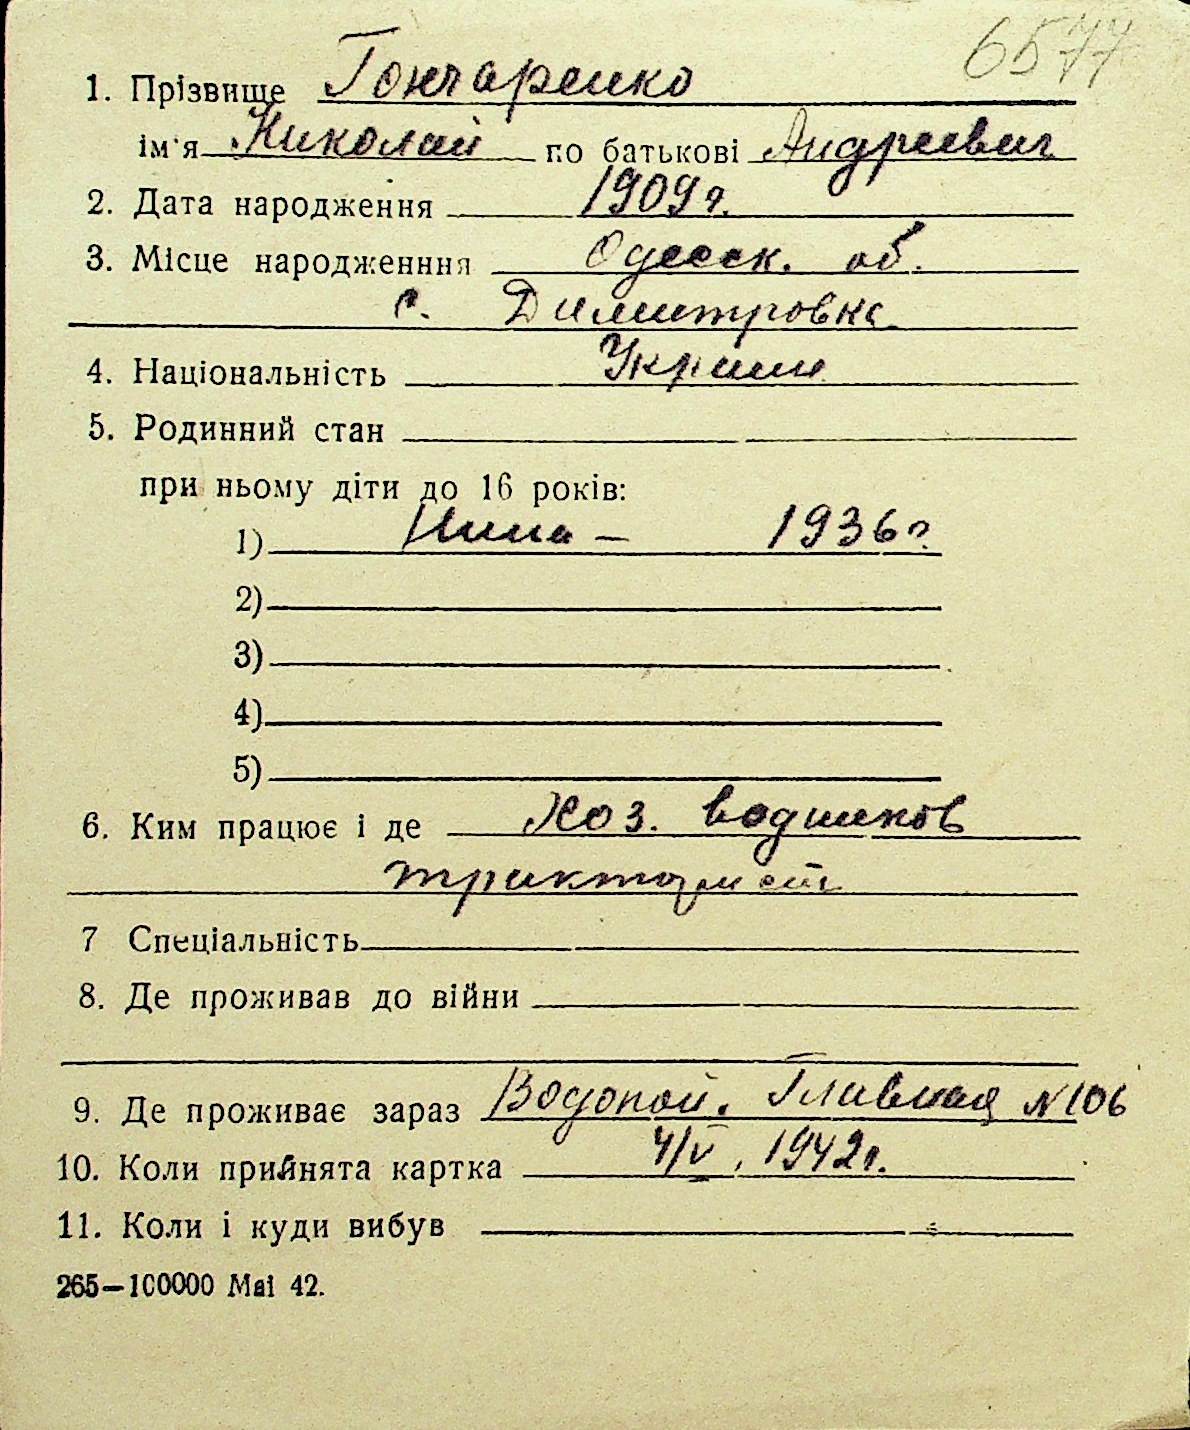 6577
1. Прізвище Гончаренко
ім'я Николай по батькові Андреевич
2. Дата народження 1909 г.
3. Місце народженння Одесск. об.
с. Димитровка
4. Національність Украин
5. Родинний стан
при ньому діти до 16 років:
1) Нина – 1936 г.
2)
3)
4)
5)
6. Ким працює і де Хоз. водников
тракторист
7 Спеціальність
8. Де проживав до війни
9. Де проживає зараз Водопой. Главная №106
10. Коли прийнята картка 4/V. 1942 г.
11. Коли і куди вибув
265—100000 Маі 42.